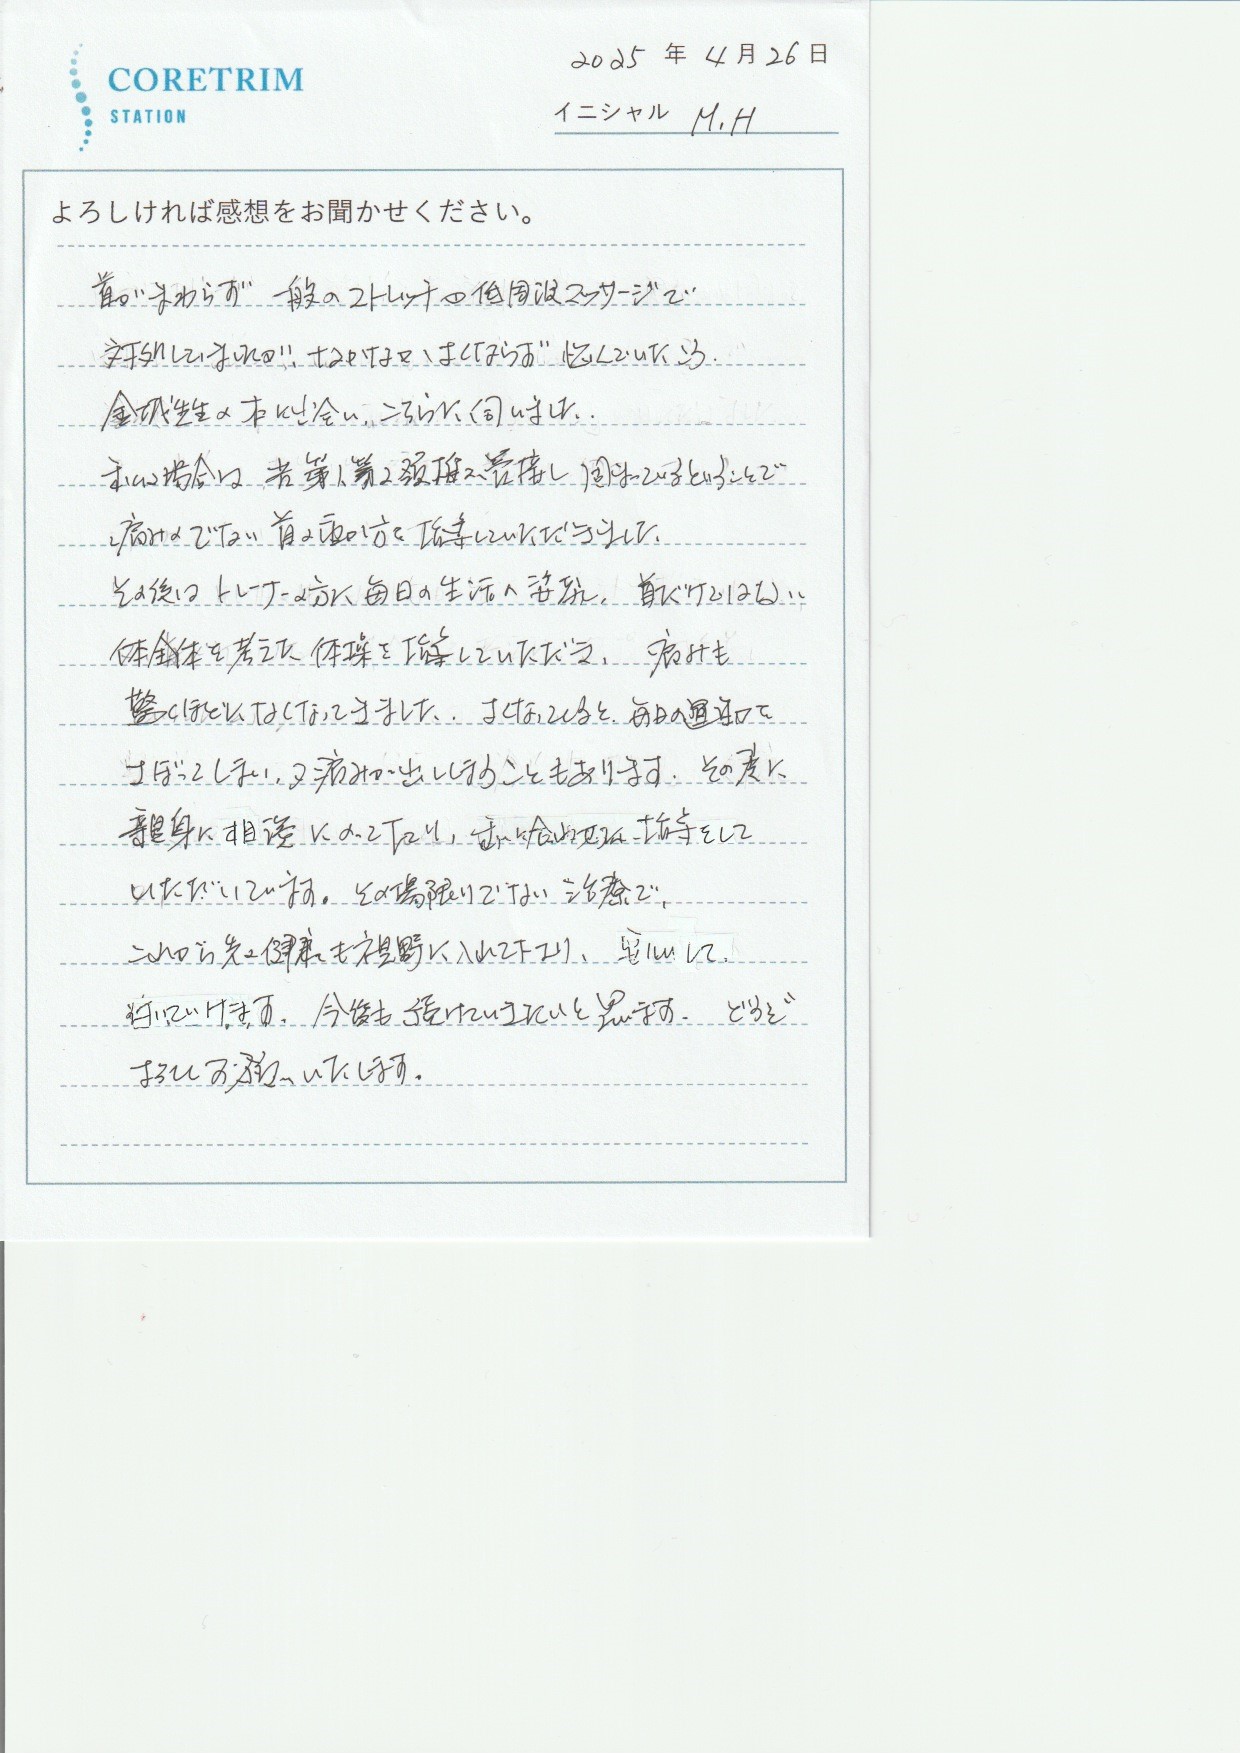 CORETRIM
STATION
2025 年 4 月 26 日
イニシャル M.H
よろしければ感想をお聞かせください。
首がまわらず 一般のストレッチや低周波マッサージで
対処していましたが、なかなかよくならず 悩んでいたころ、
金城先生の本に出会い、こちらに伺いました。
私の場合は 第1第2頚椎が 固まっているということで
痛みのでない 首の 方を 指導していただきました。
その後は トレーナーの方に 毎日の生活の姿勢、首だけではない
体全体を考えた 体操を 指導していただき、痛みも
驚くほどになくなってきました。 よくなってくると、毎日の運動を
さぼってしまい、又痛みが出てしまうこともあります。その度に
親身に相談にのって下さり、 指導をして
いただいています。その場限りでない 治療で、
これから先の健康も視野に入れて下さり、安心して
行っていけます。今後も 続けていきたいと思います。どうぞ
よろしくお願いいたします。